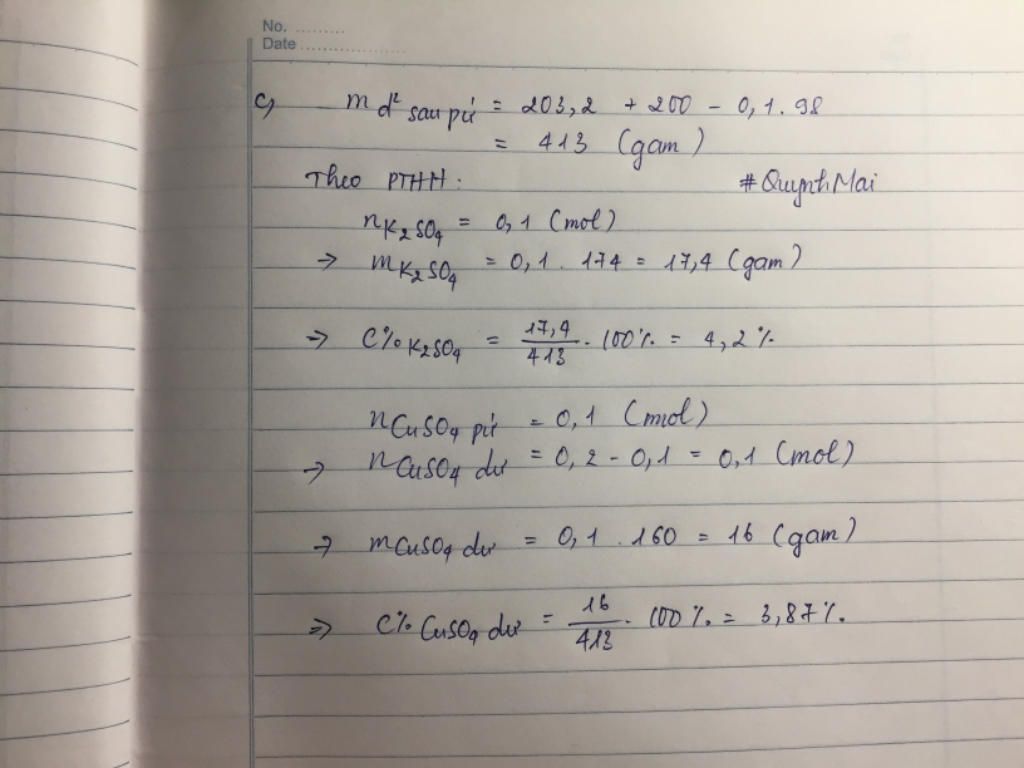 No. .........
Date ..................
c, m d² sau pứ = 203,2 + 200 - 0,1.98
= 413 (gam)
Theo PTHH:
#QuynhMai
nK2SO4 = 0,1 (mol)
→ mK2SO4 = 0,1 . 174 = 17,4 (gam)
→ C%K2SO4 = 17,4/413 . 100% = 4,2%
nCuSO4 pứ = 0,1 (mol)
→ nCuSO4 dư = 0,2 - 0,1 = 0,1 (mol)
→ mCuSO4 dư = 0,1 . 160 = 16 (gam)
⇒ C% CuSO4 dư = 16/413 . 100% = 3,87%.